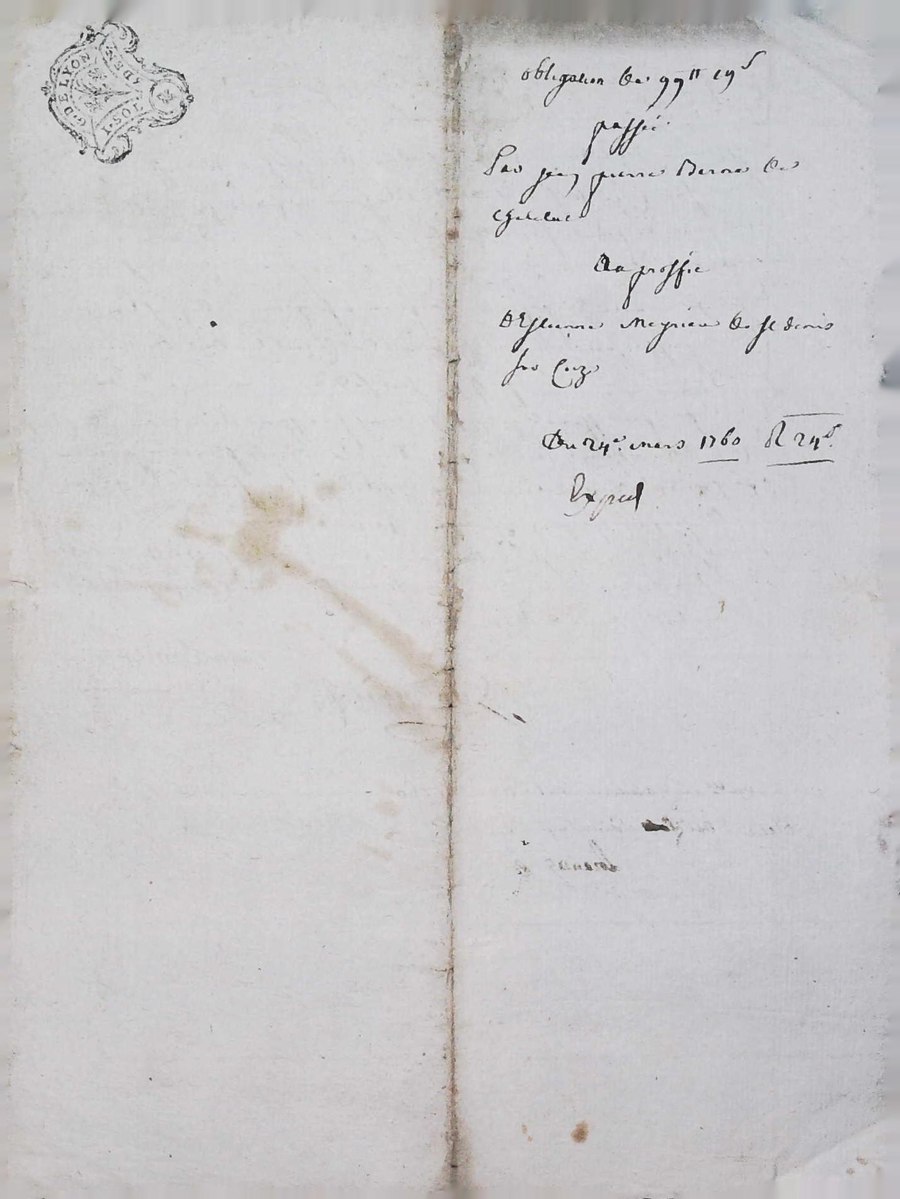 G. DE LYON
1. SOL. 4 DEN
obligation de 99ᵗᵗ 19ˢ
passée
Par jean pierre Berne de
Chatelus
Au proffit
D'Estienne Meyrieu de st denis
sur Coize
Du 24ᵉ. mars 1760 24ᵉ.
Exped